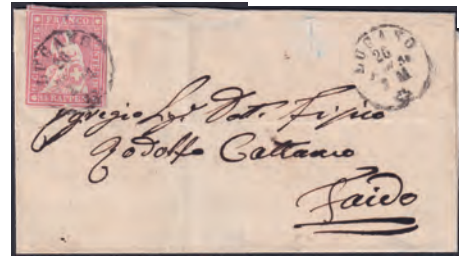 FRANCO
LUGANO
26
LUGANO
26
Egregio Sigr Dott. Fisico
Rodolfo Cattaneo
Faido